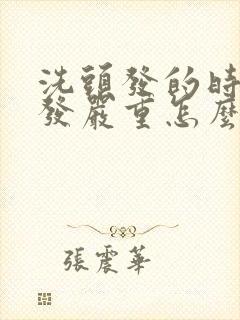 洗頭發的時
發嚴重怎麼
張震華